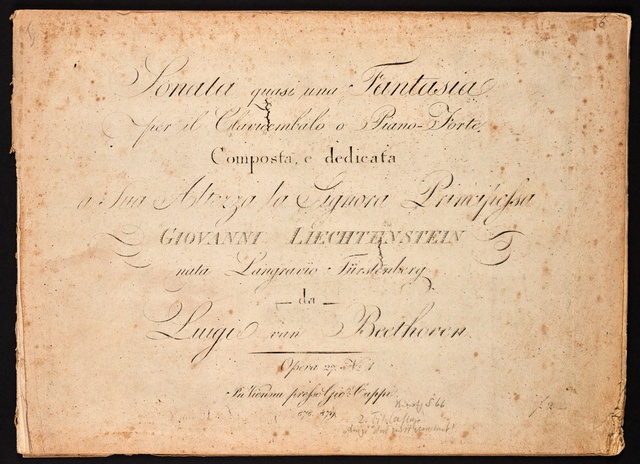 6
Sonata quasi una Fantasia
per il Clavicembalo o Piano-Forte.
Composta, e dedicata
a Sua Altezza la Signora Principessa
GIOVANNI LIECHTENSTEIN
nata Langravio Fürstenberg
— da —
Luigi van Beethoven.
Opera 27. No. 1
In Vienna presso Gio. Cappi
878. 879.
Kinsky S 66